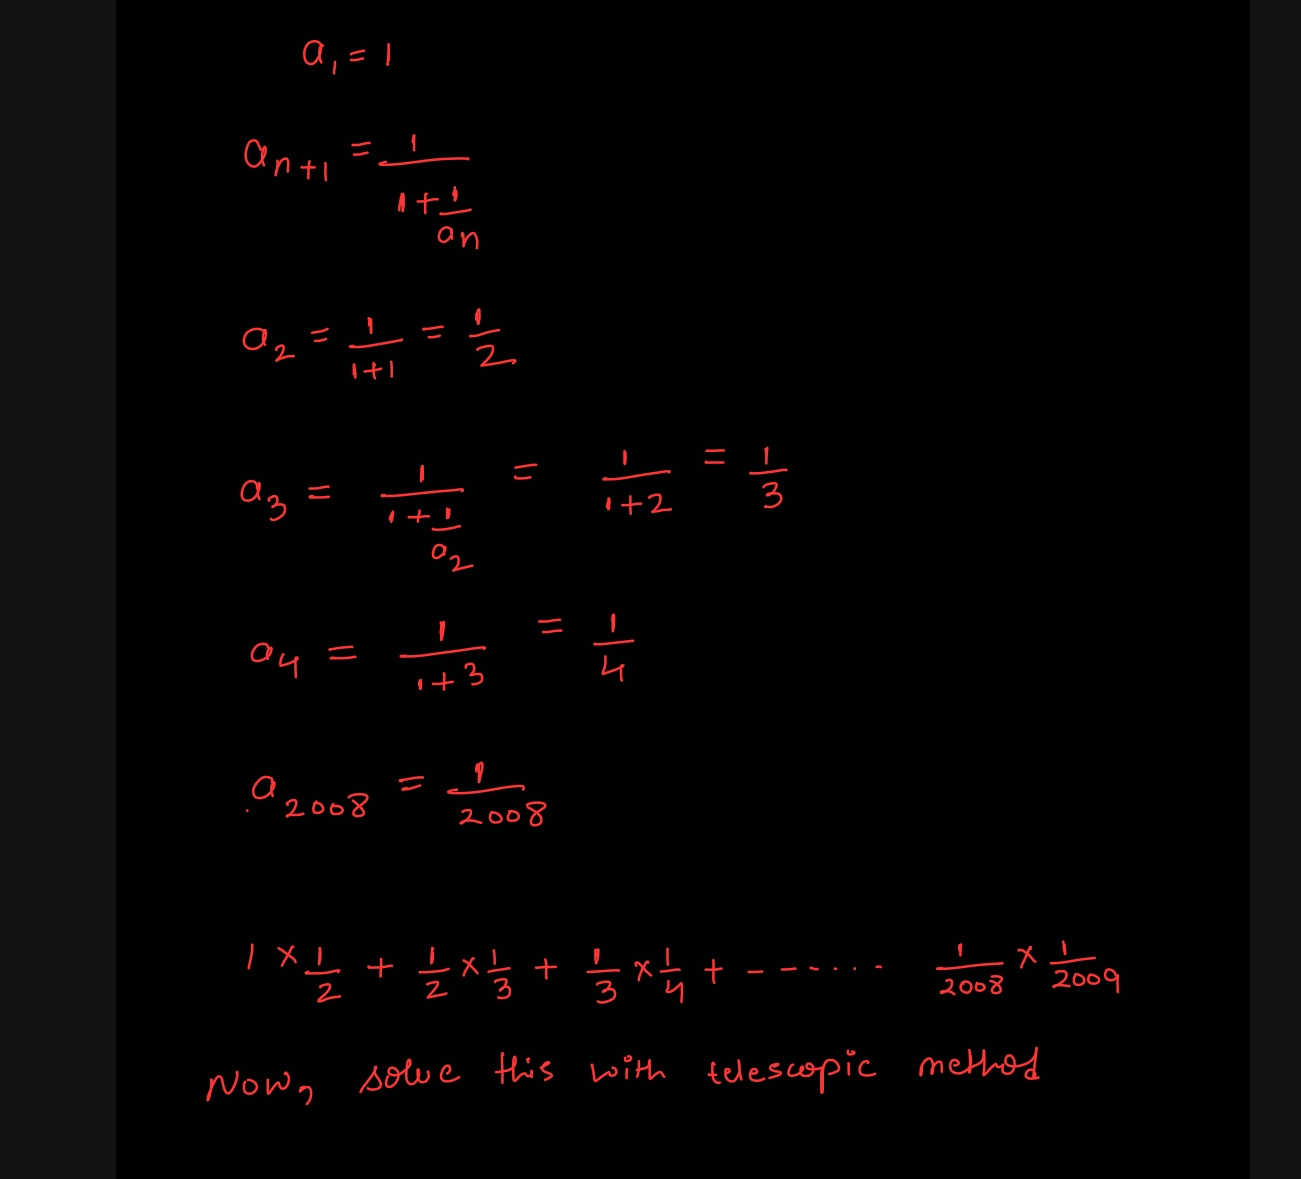 a₁ = 1
aₙ₊₁ = 1/(1 + 1/aₙ)
a₂ = 1/(1+1) = 1/2
a₃ = 1/(1 + 1/a₂) = 1/(1+2) = 1/3
a₄ = 1/(1+3) = 1/4
a₂₀₀₈ = 1/2008
1 × 1/2 + 1/2 × 1/3 + 1/3 × 1/4 + ------- 1/2008 × 1/2009
Now, solve this with telescopic method